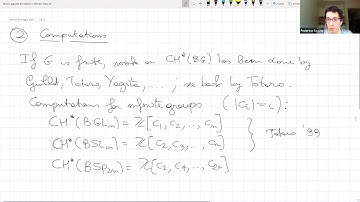 ② Computations
If G is finite, work on CH*(BG) has been done by
Guillot, Totaro, Yagita, ....; see book by Totaro.
Computations for infinite groups (|ci|=i):
CH*(BGLn) = ℤ[c1, c2, .., cn]
CH*(BSLn) = ℤ[c2, c3, .., cn]
CH*(BSp2n) = ℤ[c2, c4, .., c2n]
Totaro '99